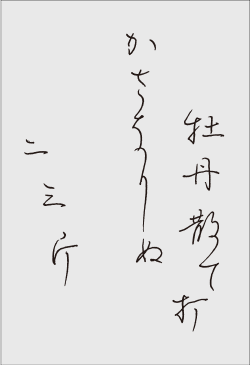 牡丹散て打
かさなりぬ
二三片